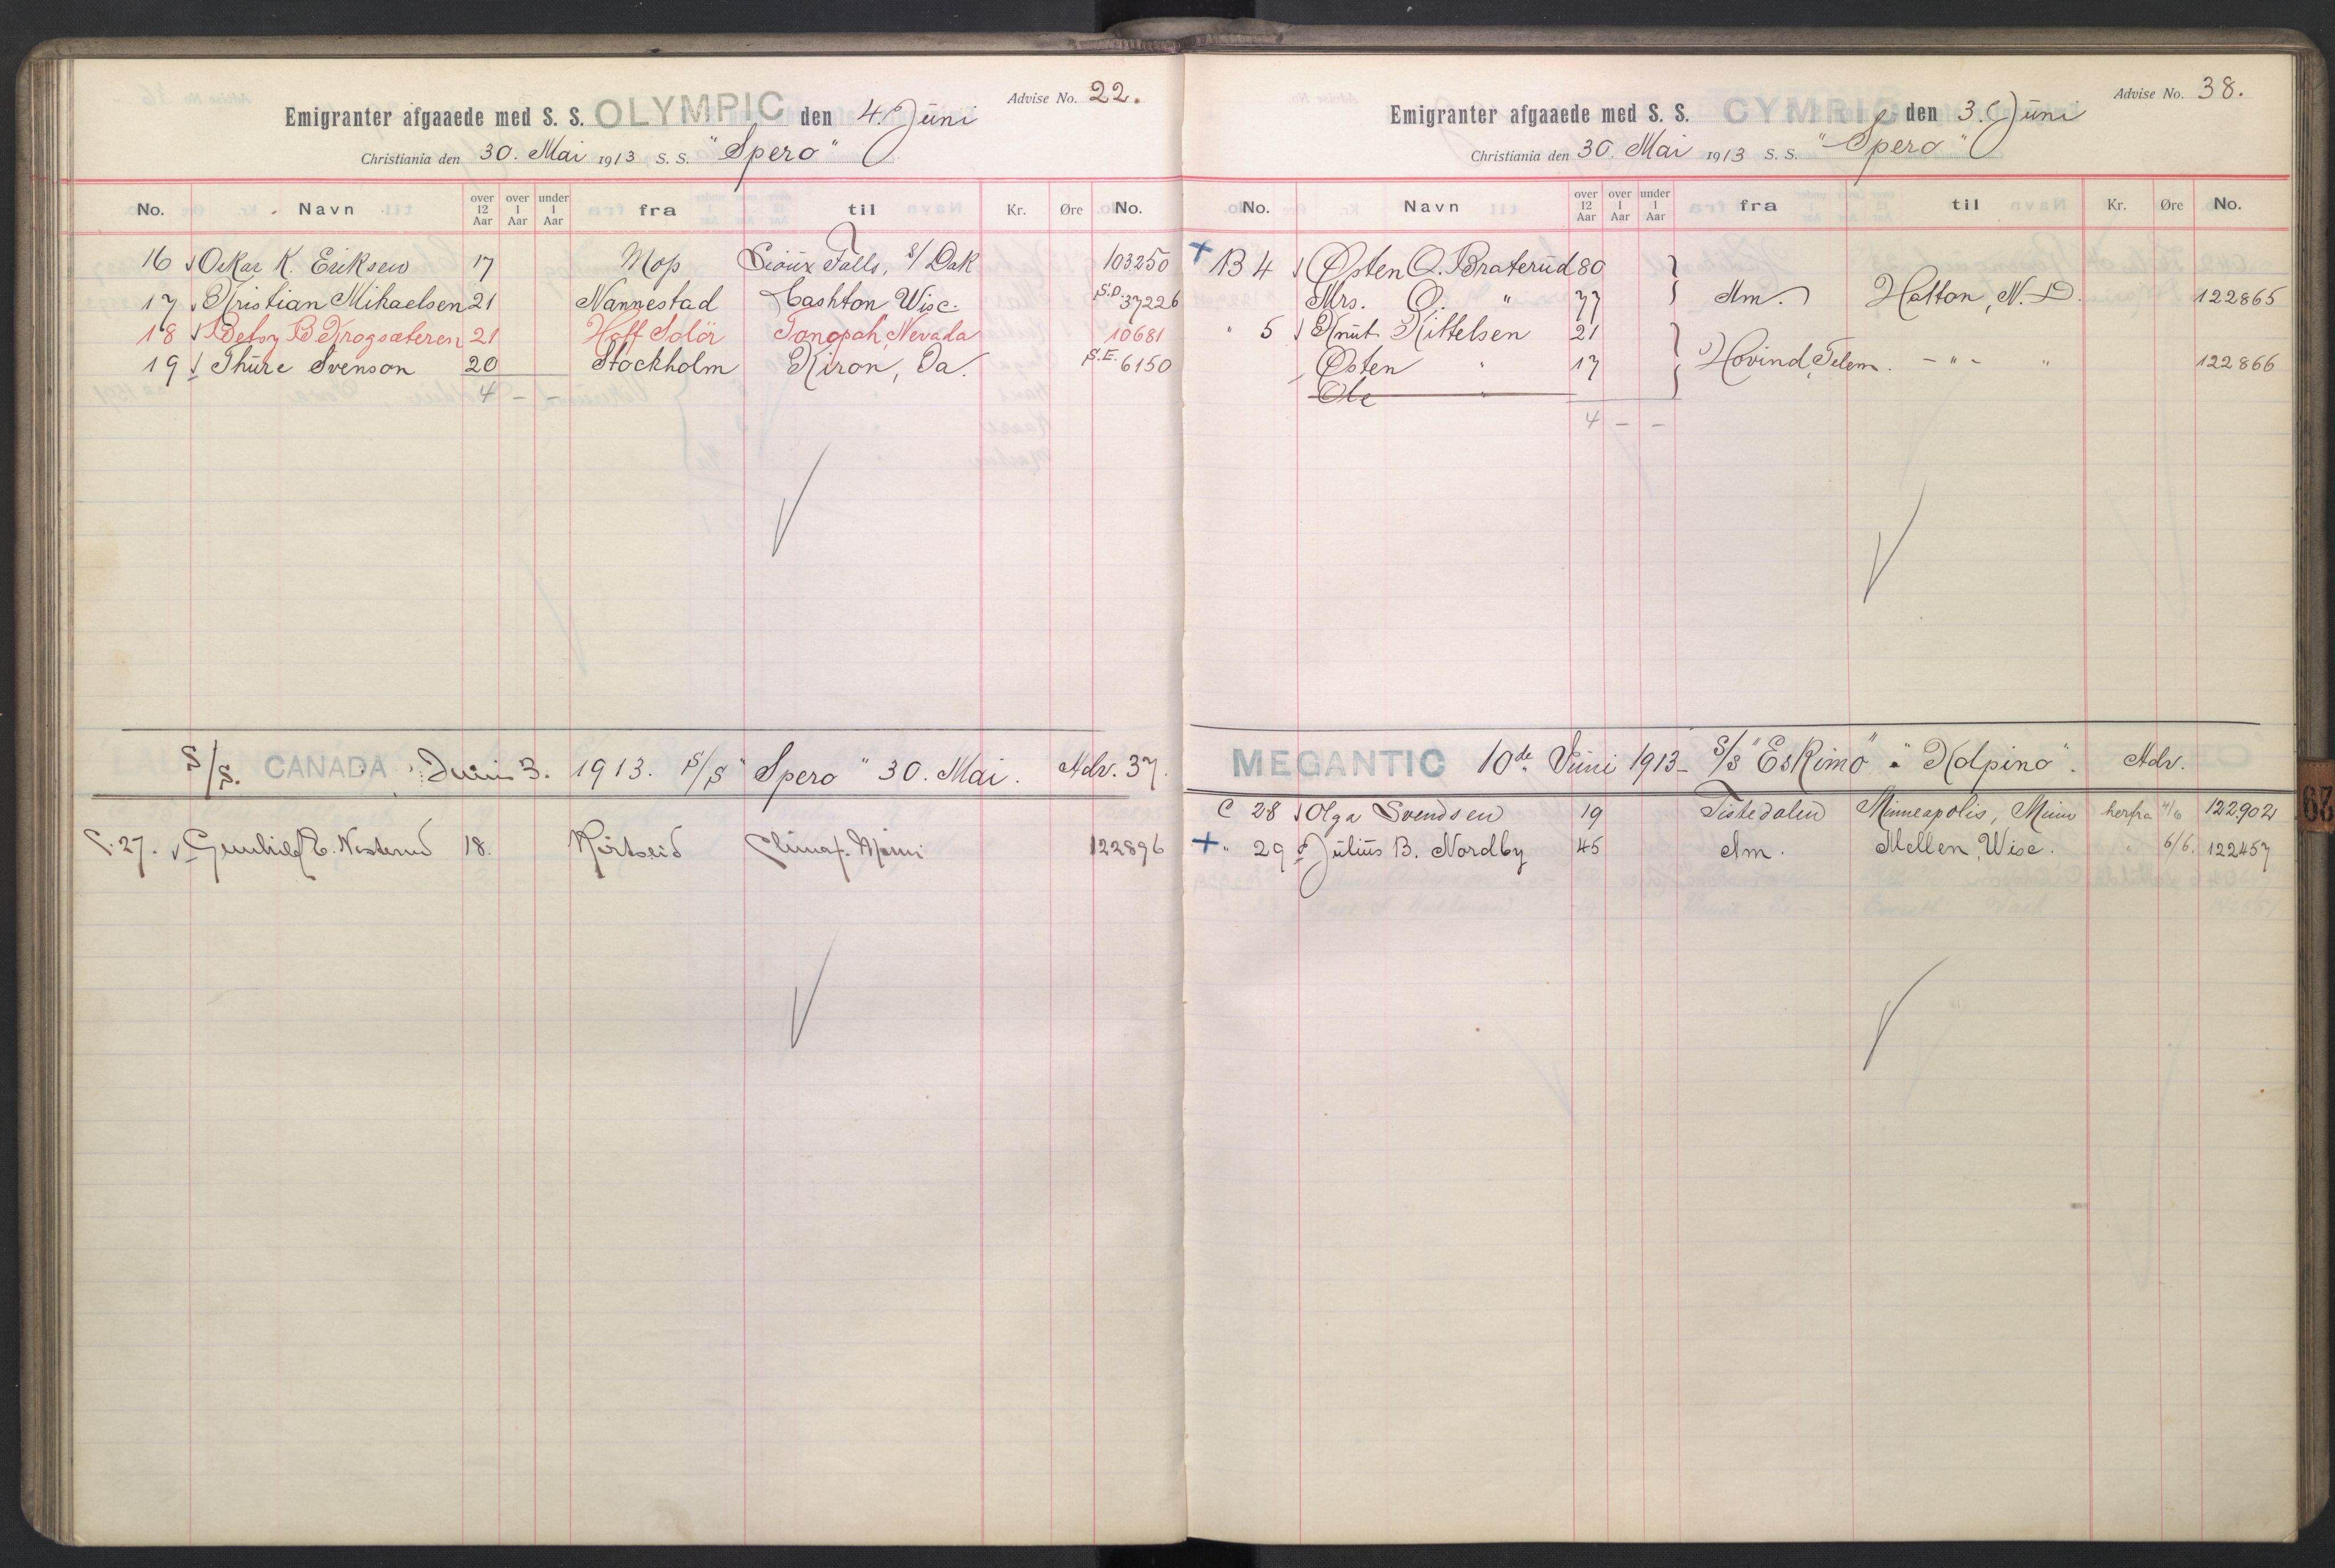 Advise No. 22.
Emigranter afgaaede med S. S. OLYMPIC den 4. Juni
Christiania den 30. Mai 1913 S. S. "Spero"
No. Navn over 12 Aar over 1 Aar under 1 Aar fra til Kr. Øre No.
16 Oskar K. Eriksen 17 Moss Sioux Falls, S/Dak 103250
17 Kristian Mikaelsen 21 Nannestad Cashton Wisc. S.D. 37226
18 Betsy B Krogsæteren 21 Hoff Solör Tonopah, Nevada 10681
19 Thure Svenson 20 Stockholm Kiron, Ia. S.E. 6150
4 - -
S/S. CANADA Juni 3. 1913. S/S "Spero" 30. Mai. Adv. 37.
C. 27. Gunhild E. Nesterud 18. Climax. Minn 122896
Advise No. 38.
Emigranter afgaaede med S. S. CYMRIC den 3. Juni
Christiania den 30. Mai 1913 S. S. "Spero"
No. Navn over 12 Aar over 1 Aar under 1 Aar fra til Kr. Øre No.
+ B 4 Østen O. Braterud 80
Mrs. O. " 77 Am. Hatton, N. D. 122865
" 5 Knut Kittelsen 21
Østen " 17 Hovind, Telem. - " - " 122866
Ole "
4 - -
MEGANTIC 10de Juni 1913 - S/S "Eskimo" "Kolpino". Adv.
C 28 Olga Svendsen 19 Tistedalen Minneapolis, Minn herfra 4/6 122902
+ " 29 Julius B. Nordby 45 Am. Mellen, Wisc. " 6/6. 122457